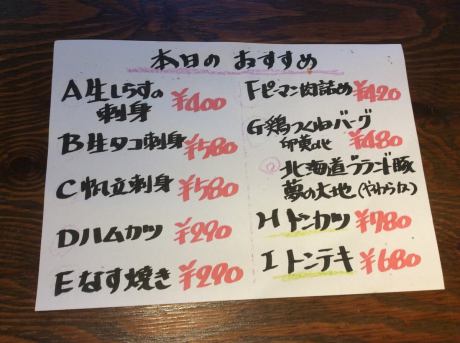 本日のおすすめ
A生しらすの
刺身 ¥400
B生タコ刺身 ¥580
C帆立刺身 ¥580
Dハムカツ ¥290
Eなす焼き ¥290
Fピーマン肉詰め ¥420
G鶏つくねバーグ
¥480
北海道ブランド豚
夢の大地(やわらか)
Hトンカツ ¥780
Iトンテキ ¥680